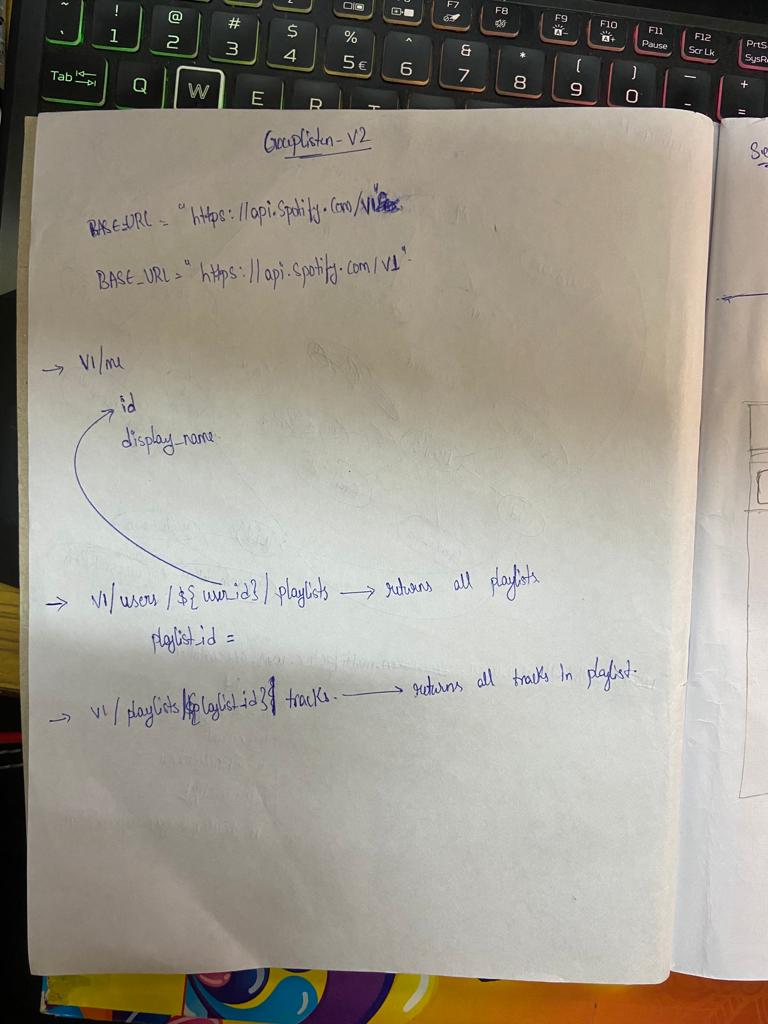 ~ ! @ # $ % ^ & * ( ) —
` 1 2 3 4 5 € 6 7 8 9 0 - + =
F7 F8 F9 F10 F11 F12 PrtS
A- A+ Pause Scr Lk SysR
Tab Q W E R T
Grouplisten - V2
BASE_URL = "https://api.spotify.com/V1"
BASE_URL = "https://api.spotify.com/v1".
→ V1/me
id
display_name
→ V1/users/${user_id}/playlists → returns all playlists
playlist_id =
→ V1/playlists/${playlist_id}/tracks. → returns all tracks in playlist.
Se